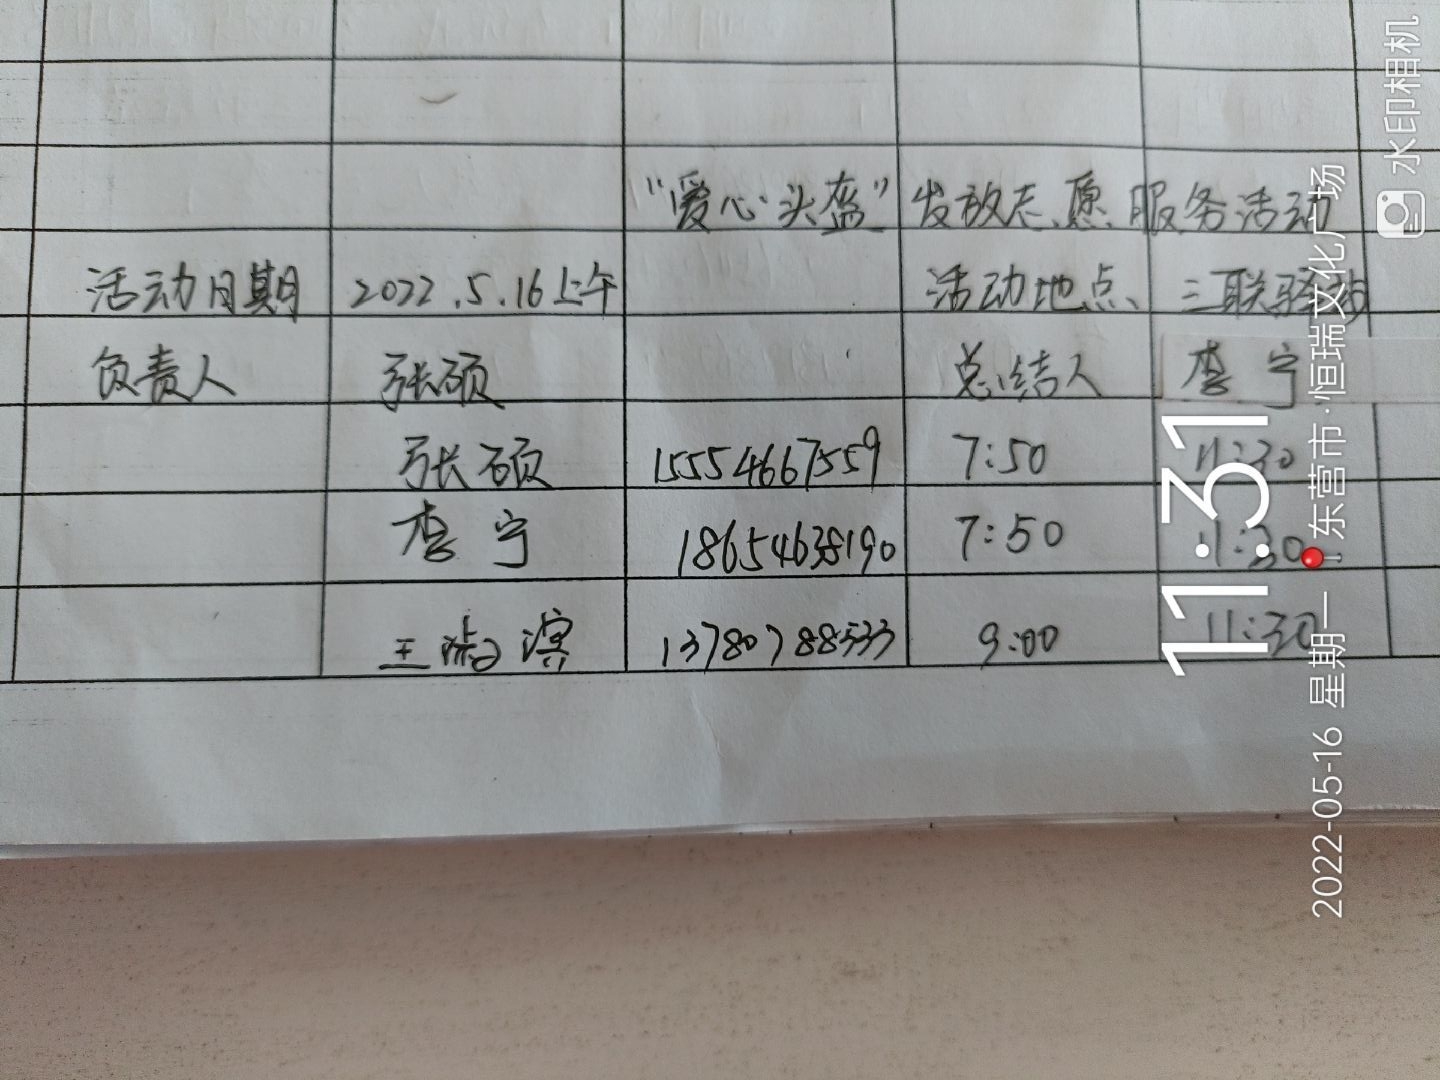 "爱心头盔"发放志愿服务活动
活动日期 2022.5.16上午 活动地点 三联驿站
负责人 张硕 总结人 李宁
张硕 15554667559 7:50 11:30
李宁 18654638190 7:50 11:30
王 滨 13780788533 9:00 11:30
11:31
2022-05-16 星期一 东营市·恒瑞文化广场
水印相机